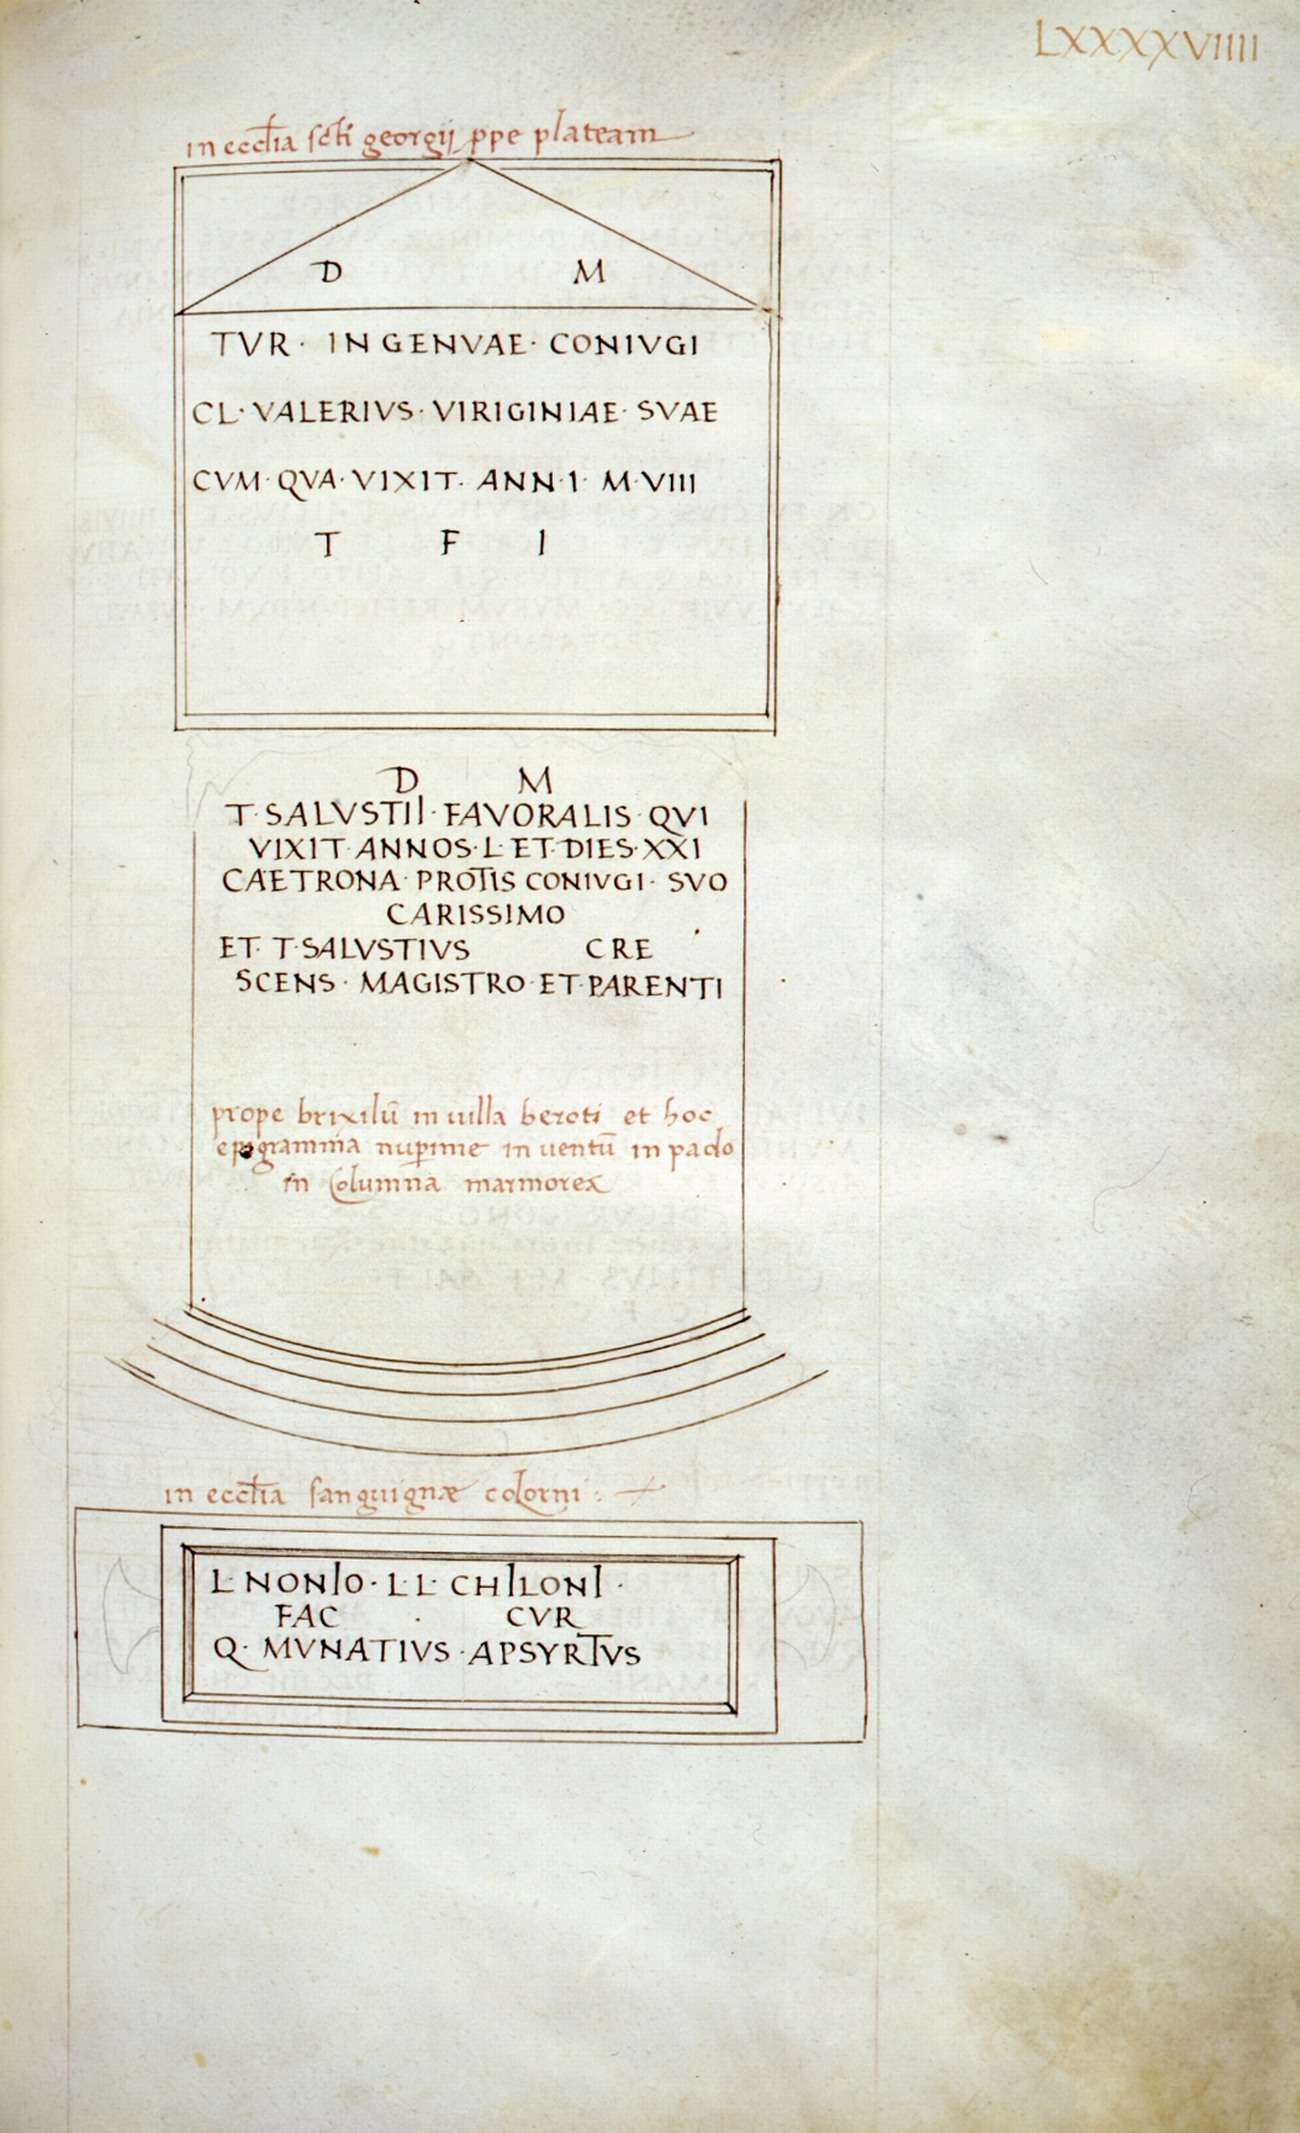 LXXXXVIIII
in eccl̄ia sc̄ti georgij ꝓpe plateam
D M
TVR · INGENVAE · CONIVGI
CL · VALERIVS · VIRIGINIAE · SVAE
CVM · QVA · VIXIT · ANN · I · M · VIII
T F I
D M
T · SALVSTII · FAVORALIS · QVI
VIXIT ANNOS · L · ET · DIES · XXI
CAETRONA · PROTIS CONIVGI · SVO
CARISSIMO
ET · T · SALVSTIVS CRE
SCENS · MAGISTRO · ET · PARENTI
prope brixilū in uilla beroti et hoc
epigramma nuꝑime inuentū in pado
in Columna marmorea
in eccl̄ia sanguignæ colorni
L · NONIO · L · L · CHILONI ·
FAC · CVR
Q · MVNATIVS · APSYRTVS